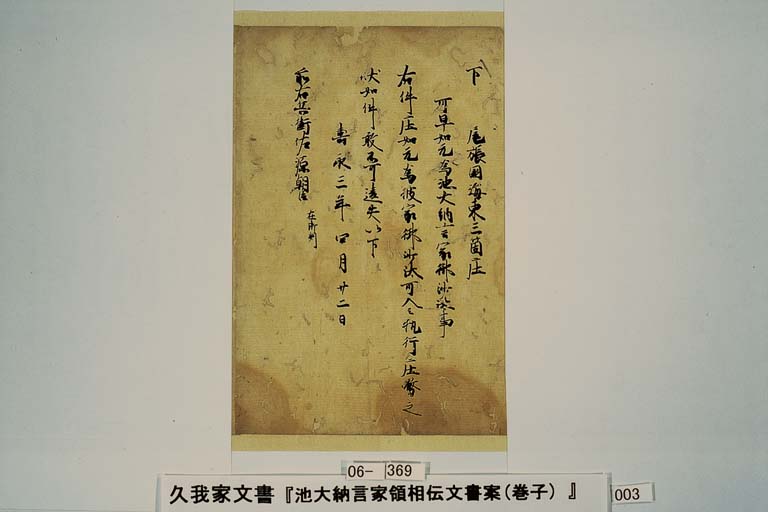 下　尾張國海東三箇庄
可早如元為池大納言家御沙汰事
右件庄如元為彼家御沙汰可令執行庄務之
状如件敢不可違失以下
壽永三年四月廿二日
前右兵衛佐源朝臣 在御判
06- 369
久我家文書『池大納言家領相伝文書案(巻子)』 003